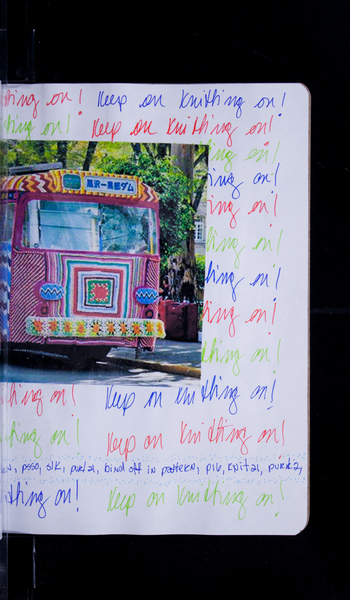 thing on! Keep on Knitting on!
thing on! Keep on Knitting on!
ing on!
黒沢一黒部ダム
ing on!
ing on!
thing on!
thing on!
thing on!
thing on!
thing on! Keep on Knitting on!
thing on! Keep on Knitting on!
psso, slk, purl21, bind off in pattern, p16, knit21,
thing on! Keep on Knitting on!